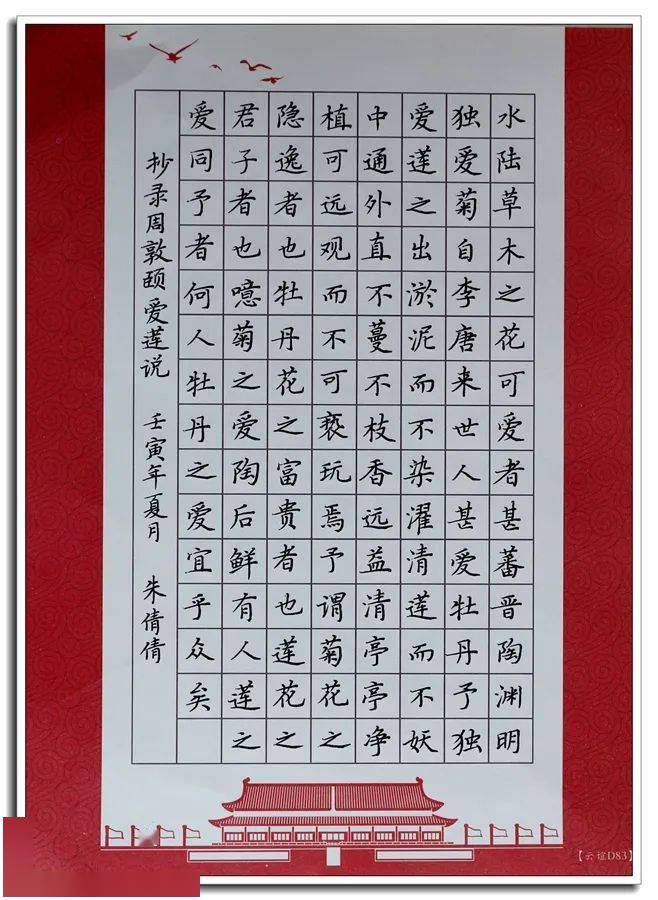 水陆草木之花可爱者甚蕃晋陶渊明
独爱菊自李唐来世人甚爱牡丹予独
爱莲之出淤泥而不染濯清莲而不妖
中通外直不蔓不枝香远益清亭亭净
植可远观而不可亵玩焉予谓菊花之
隐逸者也牡丹花之富贵者也莲花之
君子者也噫菊之爱陶后鲜有人莲之
爱同予者何人牡丹之爱宜乎众矣
抄录周敦颐爱莲说 壬寅年夏月 朱倩倩
【云谊D83】